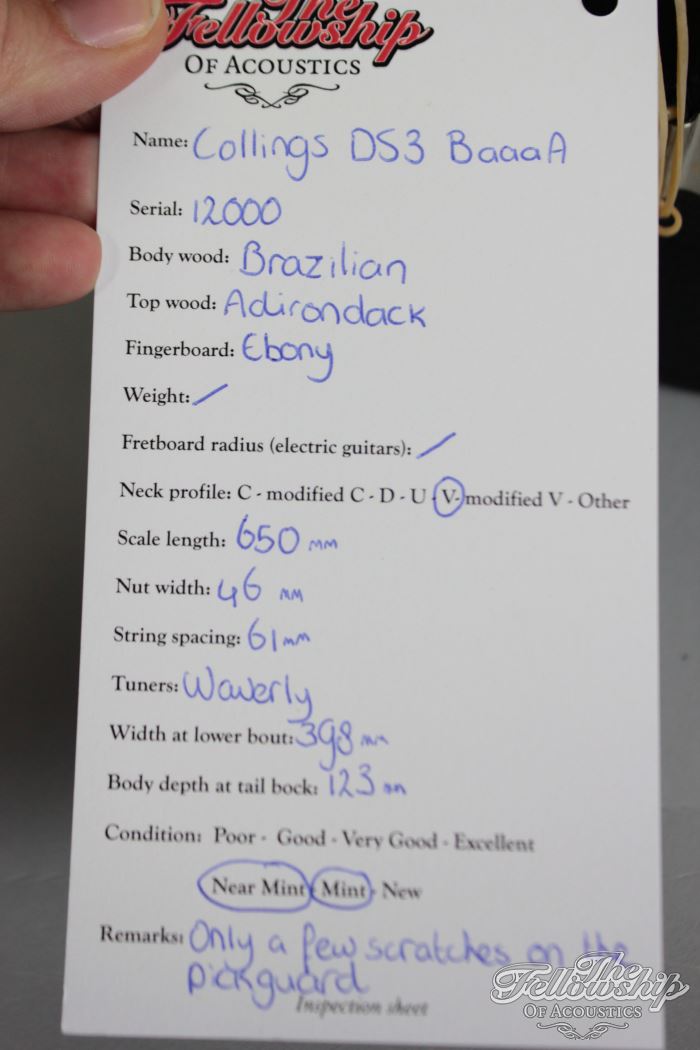 The
Fellowship
OF ACOUSTICS
Name: Collings DS3 BaaaA
Serial: 12000
Body wood: Brazilian
Top wood: Adirondack
Fingerboard: Ebony
Weight: /
Fretboard radius (electric guitars): /
Neck profile: C - modified C - D - U - V - modified V - Other
Scale length: 650 mm
Nut width: 46 mm
String spacing: 61 mm
Tuners: Waverly
Width at lower bout: 398 mm
Body depth at tail bock: 123 mm
Condition: Poor - Good - Very Good - Excellent
Near Mint - Mint - New
Remarks: Only a few scratches on the
pickguard
Inspection sheet
The
Fellowship
OF ACOUSTICS